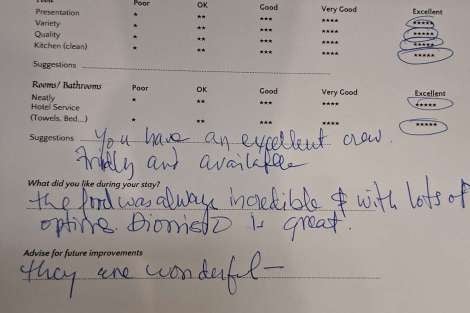 Poor OK Good Very Good Excellent
Presentation * ** *** **** *****
Variety * ** *** **** *****
Quality * ** *** **** *****
Kitchen (clean) * ** *** **** *****
Suggestions
Rooms/ Bathrooms Poor OK Good Very Good Excellent
Neatly * ** *** **** *****
Hotel Service
(Towels, Bed...) * ** *** **** *****
Suggestions You have an excellent crew.
and available
What did you like during your stay?
the food was always incredible & with lots of
options. is great.
Advise for future improvements
they are wonderful -